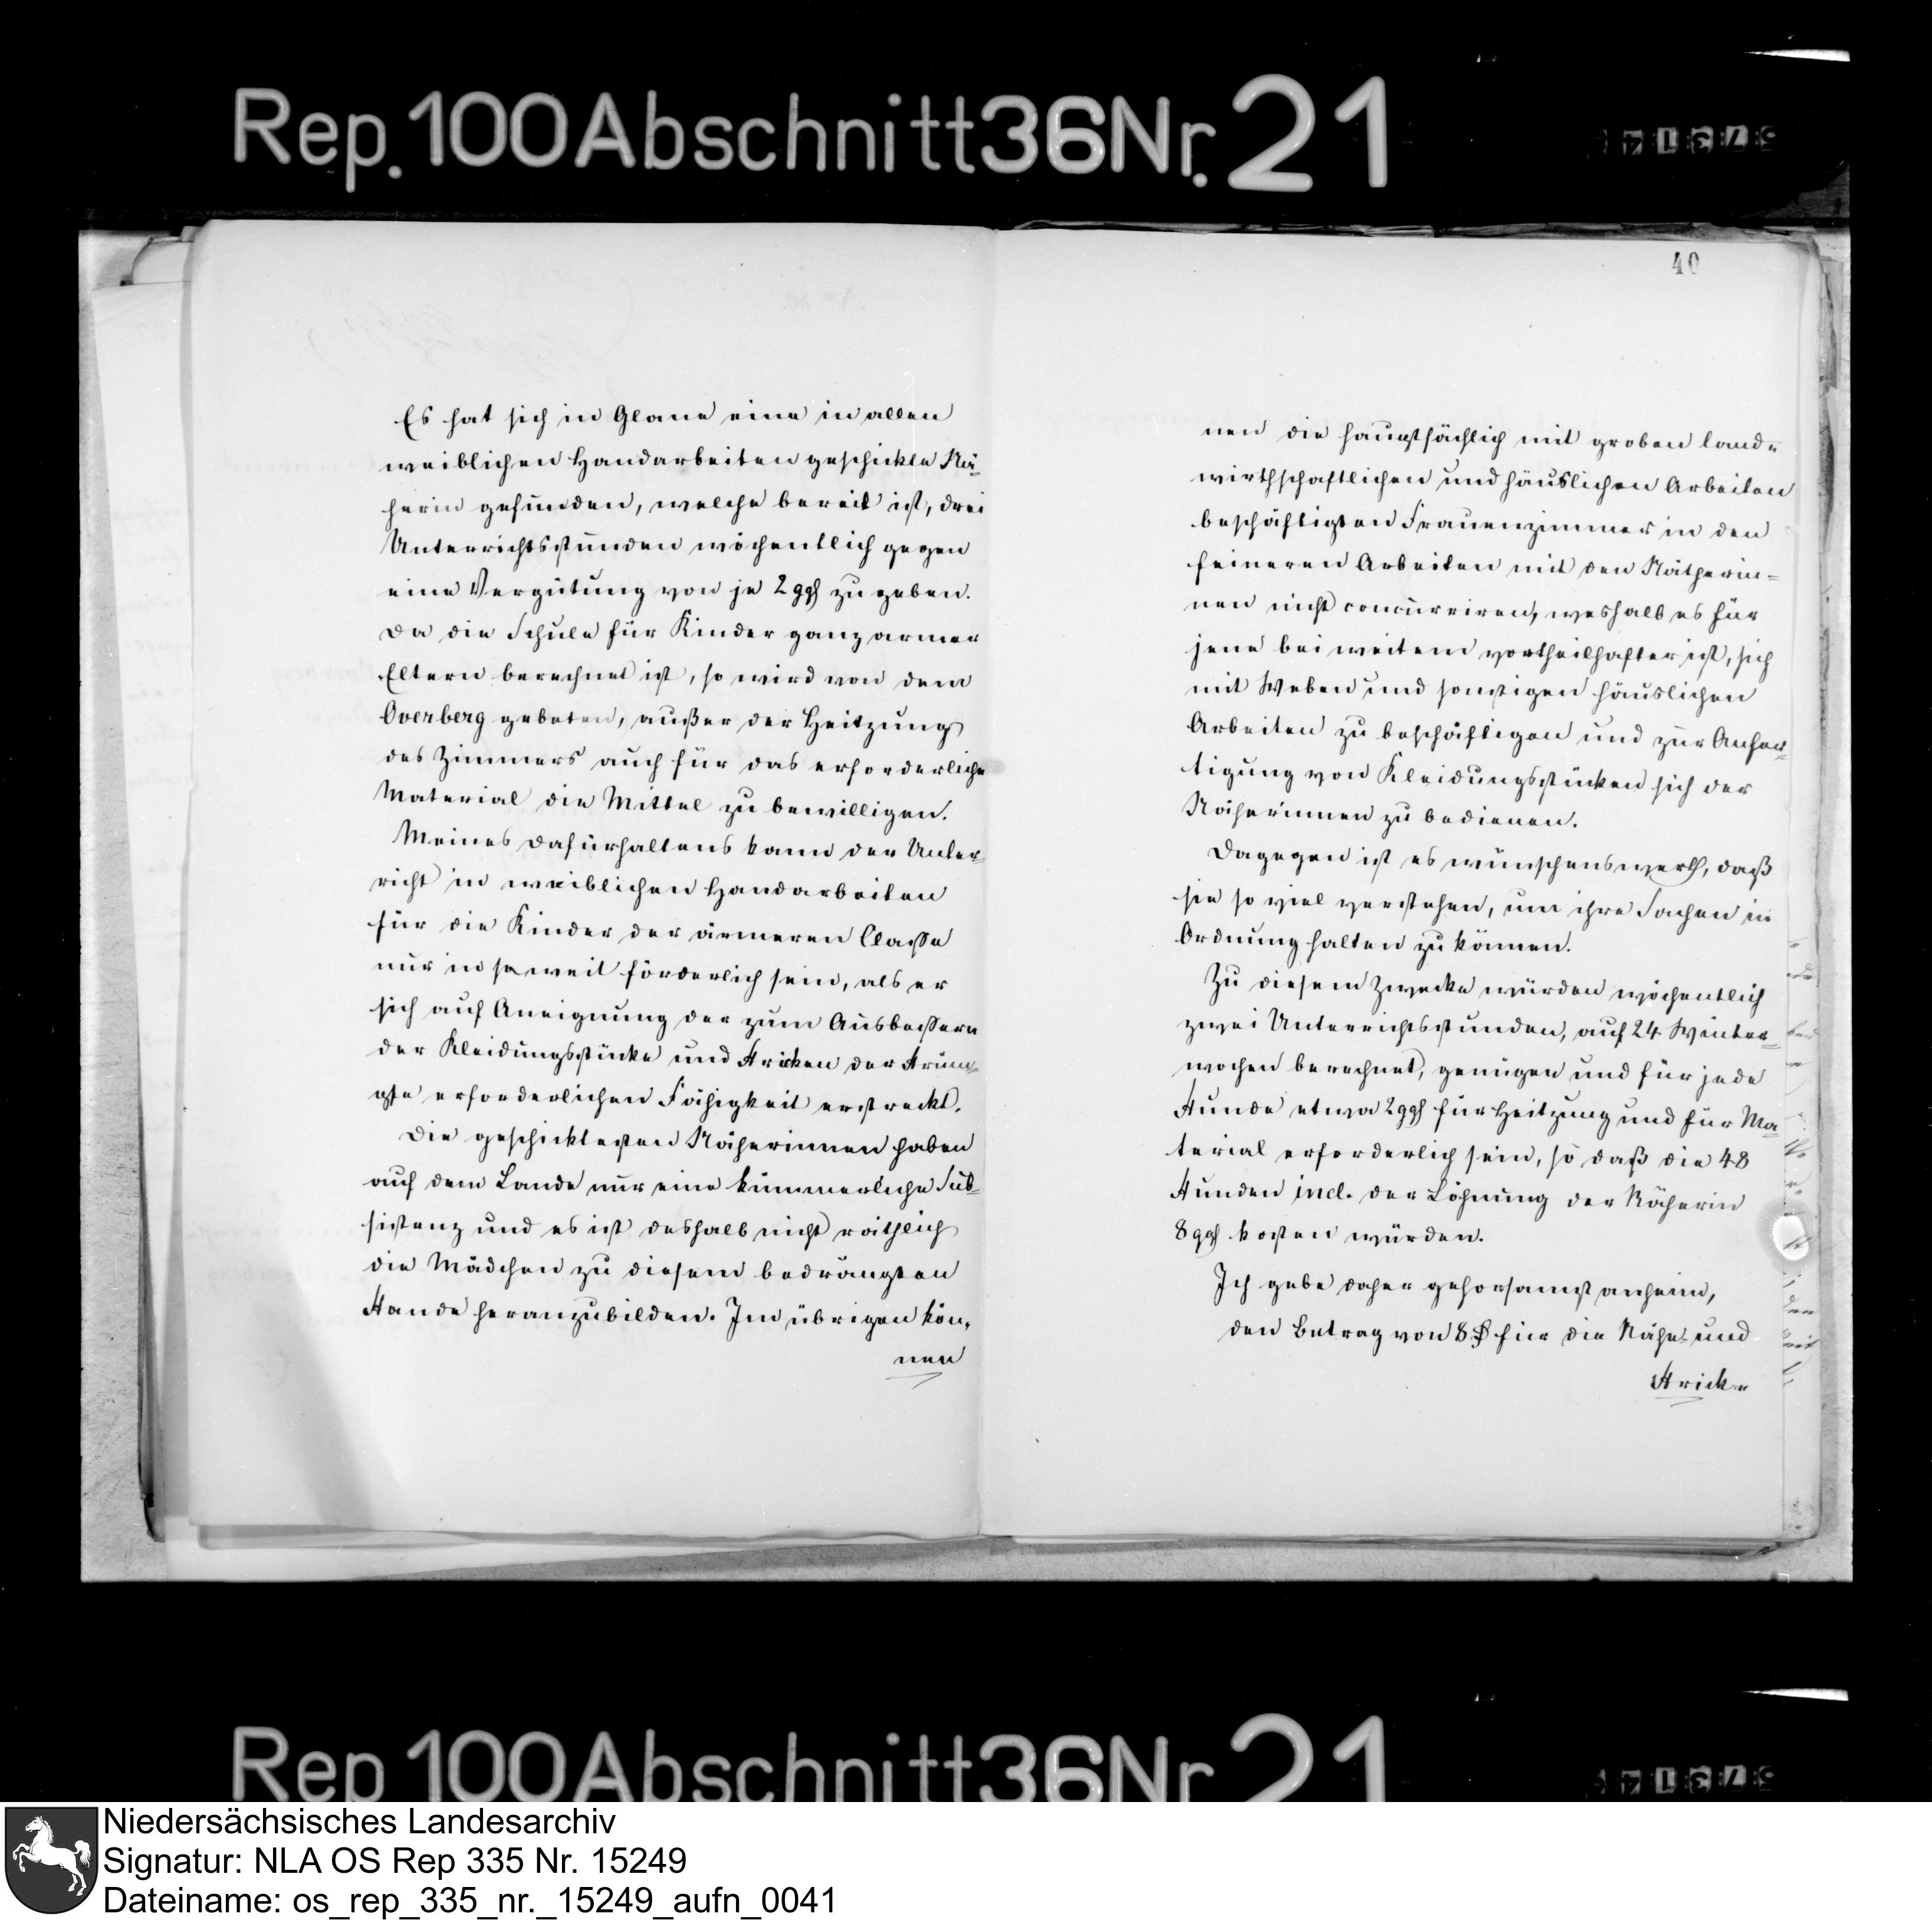 Rep. 100 Abschnitt 36 Nr. 21
40
Es hat sich in Glane eine in allen
weiblichen Handarbeiten geschickte Nä-
herin gefunden, welche bereit ist, drei
Unterrichtsstunden wöchentlich gegen
eine Vergütung von je 2 ggl zu geben.
Da die Schule für Kinder ganz armer
Eltern berechnet ist, so wird von dem
Overberg gebeten, außer der Heitzung
des Zimmers auch für das erforderliche
Material die Mittel zu bewilligen.
Meines Dafürhaltens kann der Unter-
richt in weiblichen Handarbeiten
für die Kinder der ärmeren Classe
nur in soweit förderlich sein, als er
sich auf Aneignung der zum Ausbessern
der Kleidungsstücke und Stricken der Strüm-
pfe erforderlichen Fähigkeit erstreckt.
Die geschicktesten Näherinnen haben
auf dem Lande nur eine kümmerliche Sub-
sistenz und es ist deshalb nicht räthlich
die Mädchen zu diesem bedrängten
Stande heranzubilden. Im übrigen kön-
nen
nen die hauptsächlich mit groben land-
wirthschaftlichen und häuslichen Arbeiten
beschäftigten Frauenzimmer in den
feineren Arbeiten mit den Nätherin-
nen nicht concurriren, weshalb es für
jene bei weitem vortheilhafter ist, sich
mit Weben und sonstigen häuslichen
Arbeiten zu beschäftigen und zur Anfer-
tigung von Kleidungsstücken sich der
Näherinnen zu bedienen.
Dagegen ist es wünschenswerth, daß
sie so viel verstehen, um ihre Sachen in
Ordnung halten zu können.
Zu diesem Zwecke würden wöchentlich
zwei Unterrichtsstunden, auf 24 Winter-
wochen berechnet, genügen und für jede
Stunde etwa 2 ggl für Heitzung und für Ma-
terial erforderlich sein, so daß die 48
Stunden incl. der Löhnung der Näherin
8 ggl kosten würden.
Ich gebe daher gehorsamst anheim,
den Betrag von 8 ₰ für die Nähe- und
Strick-
Rep 100 Abschnitt 36 Nr 21
Niedersächsisches Landesarchiv
Signatur: NLA OS Rep 335 Nr. 15249
Dateiname: os_rep_335_nr._15249_aufn_0041